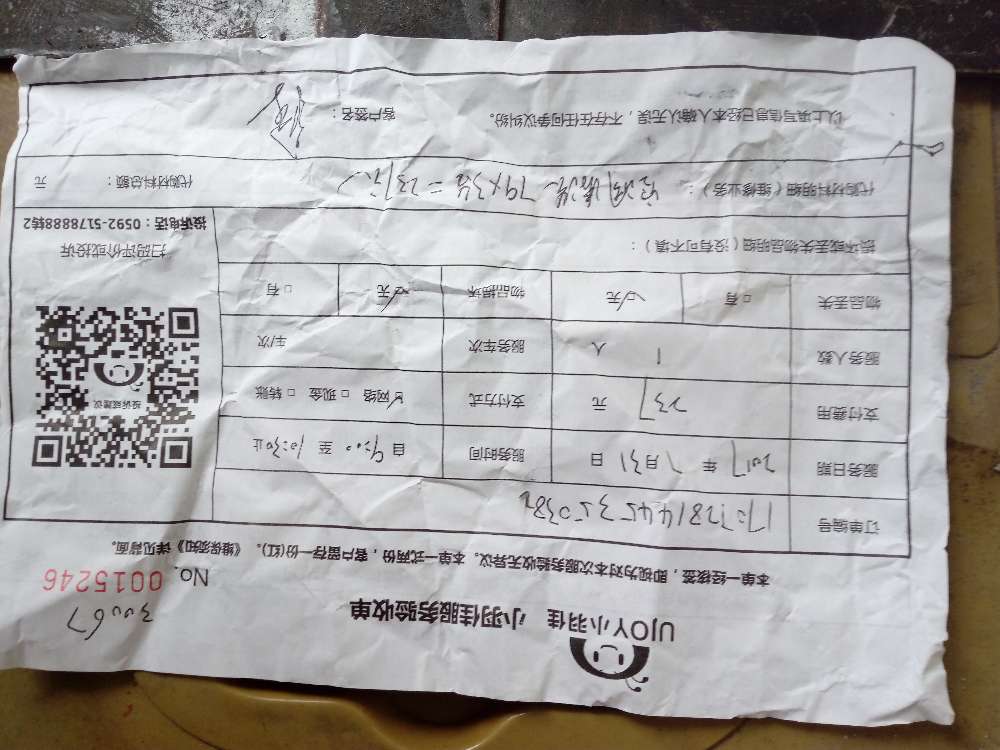 UJOY小羽佳 小羽佳服务验收单
30067
No. 0015246
本单一经核签，即视为对本次服务验收无异议。本单一式两份，客户留存一份(红)。《维保须知》详见背面。
订单编号
服务日期 2017 年 7 月 31 日 服务时间 自 9:00 至 10:30 止
支付费用 237 元 支付方式 ☑网络 □现金 □转账
服务人数 1 人 服务车次 车/次
物品丢失 □有 ☑无 物品损坏 ☑无 □有
损坏或丢失物品明细（没有可不填）：
投诉或建议
扫码评价或投诉
投诉电话：0592-5178888转2
代购材料明细（维修业务）： 空调清洗 79×3台=237元
代购材料总额： 元
以上填写信息已经本人确认无误，不存在任何争议纠纷。 客户签名：